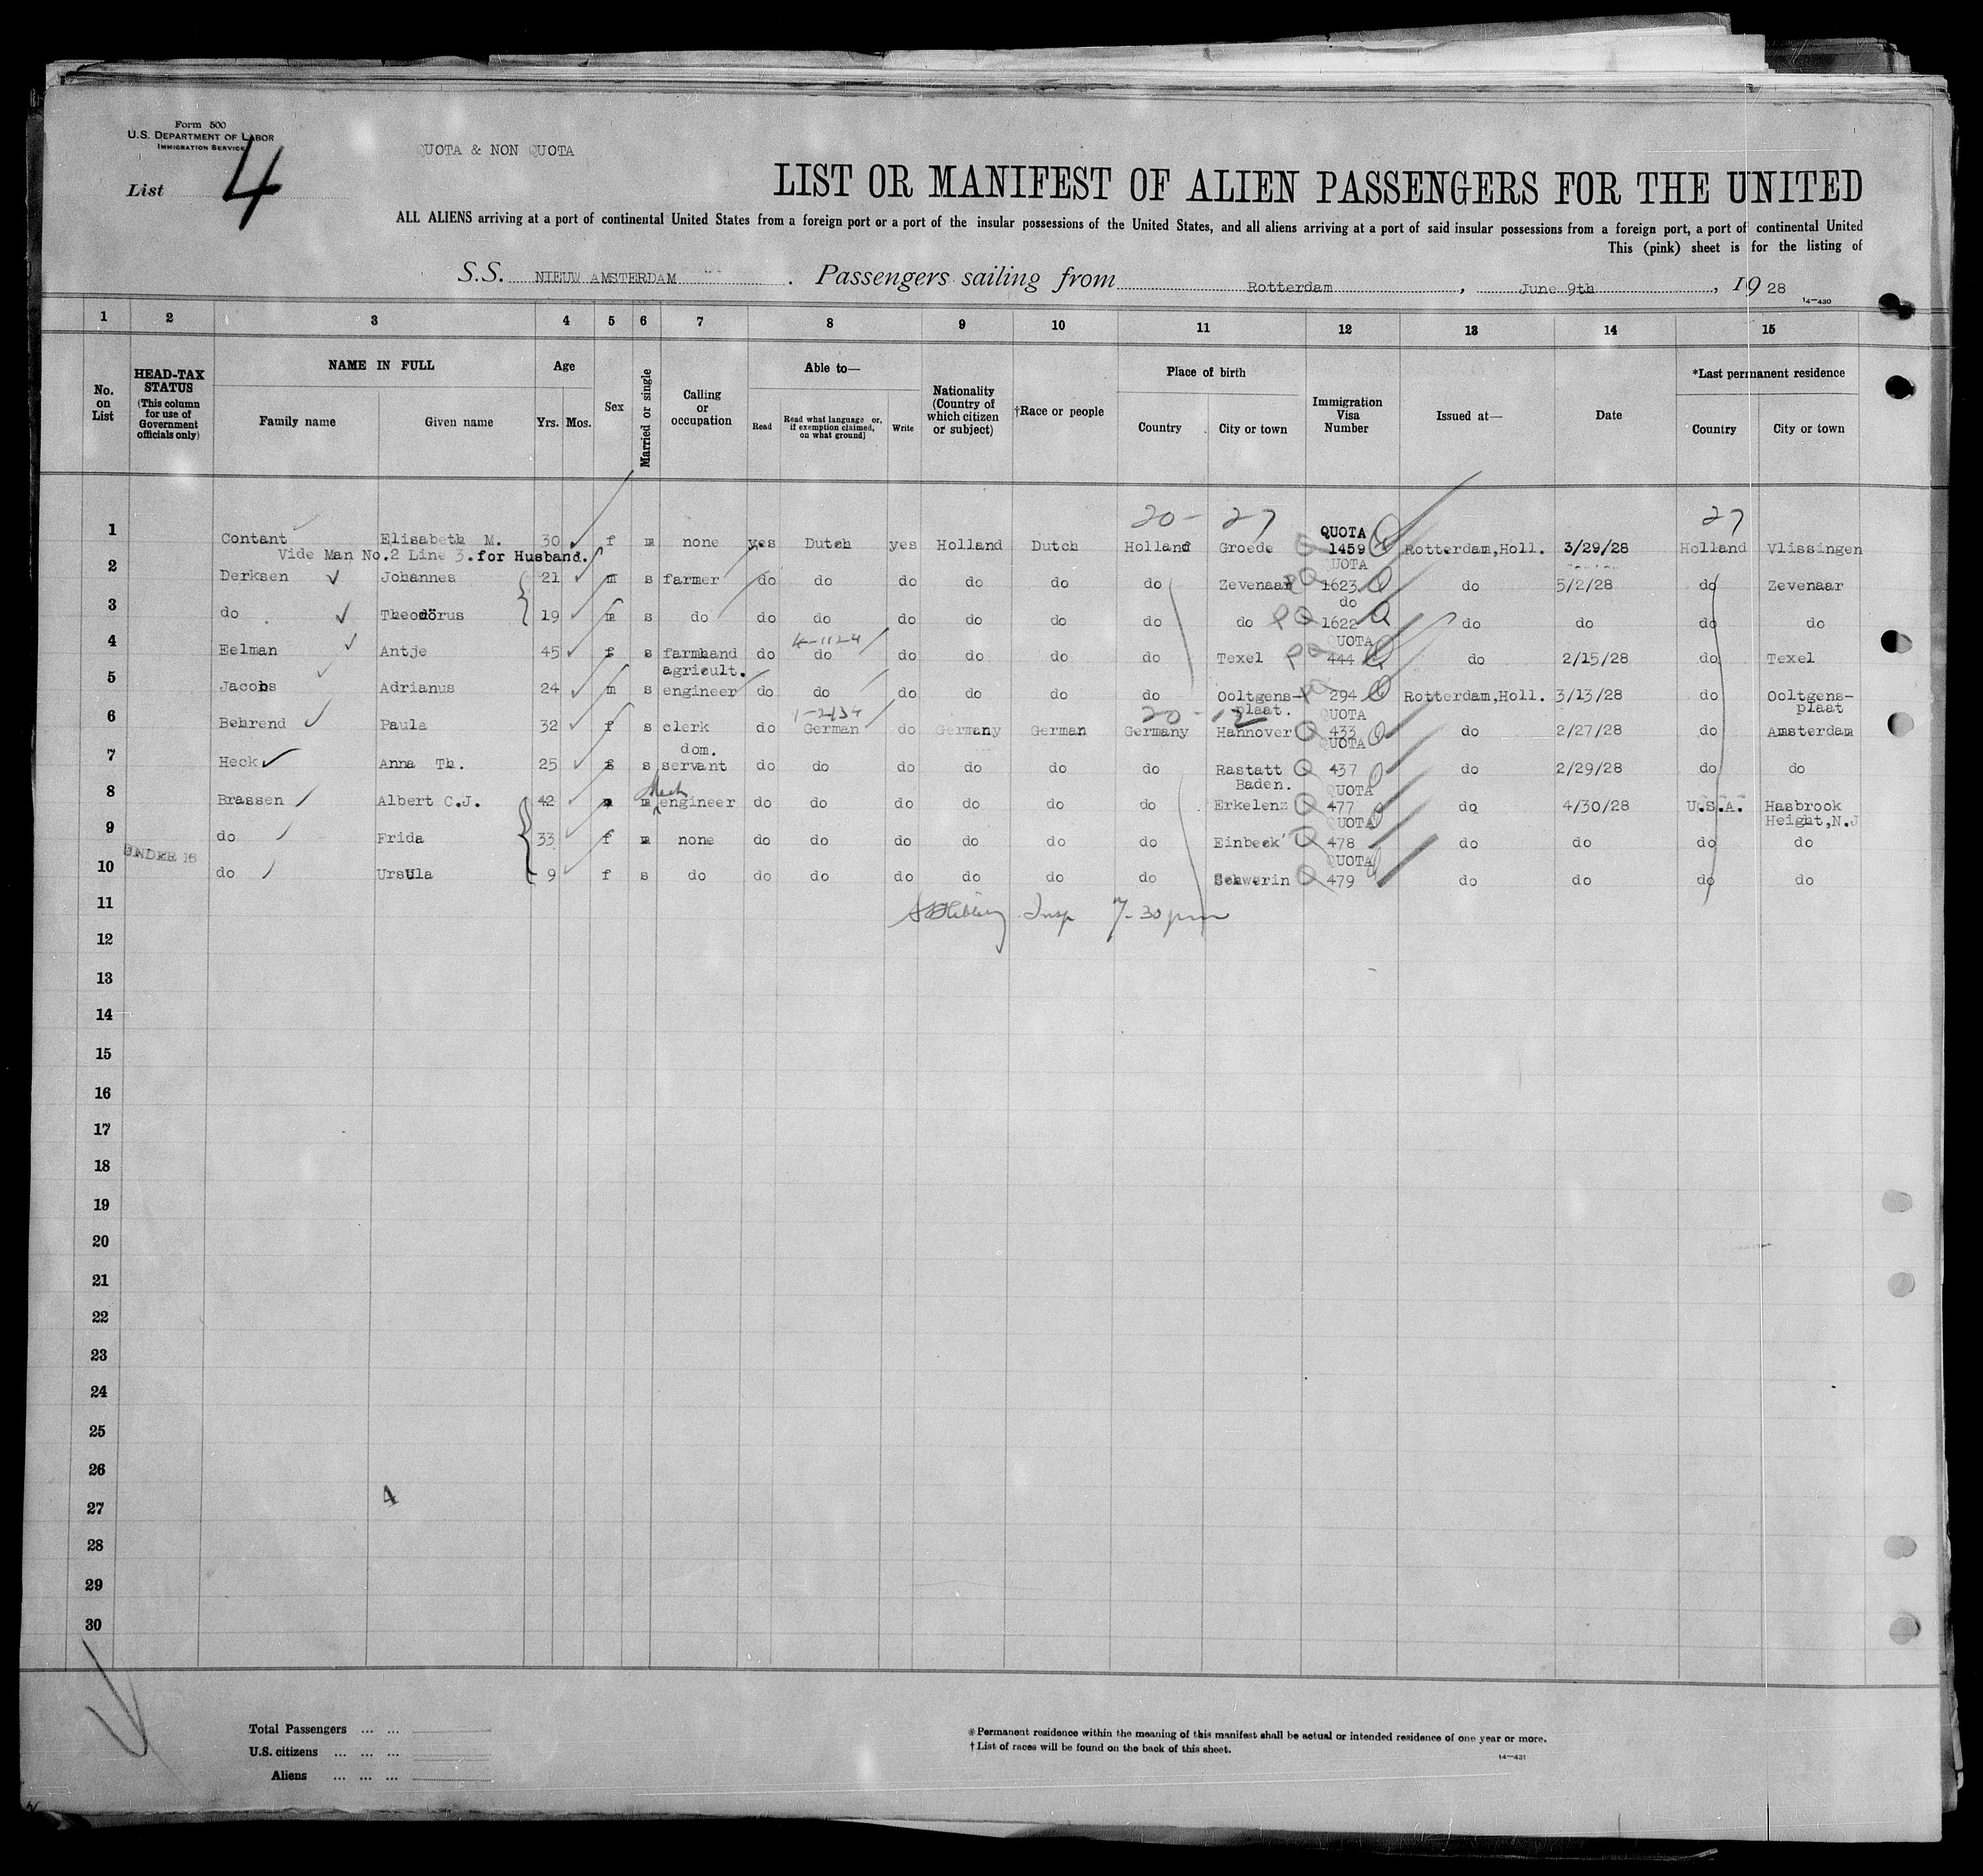 Form 500
U.S. DEPARTMENT OF LABOR
IMMIGRATION SERVICE
List 4
QUOTA & NON QUOTA
LIST OR MANIFEST OF ALIEN PASSENGERS FOR THE UNITED
ALL ALIENS arriving at a port of continental United States from a foreign port or a port of the insular possessions of the United States, and all aliens arriving at a port of said insular possessions from a foreign port, a port of continental United
This (pink) sheet is for the listing of
S.S. NIEUW AMSTERDAM. Passengers sailing from Rotterdam, June 9th, 1928
14—430
1 2 3 4 5 6 7 8 9 10 11 12 13 14 15
No. on List
HEAD-TAX STATUS (This column for use of Government officials only)
NAME IN FULL
Family name Given name
Age
Yrs. Mos.
Sex
Married or single
Calling or occupation
Able to—
Read Read what language or, if exemption claimed, on what ground] Write
Nationality (Country of which citizen or subject)
†Race or people
Place of birth
Country City or town
Immigration Visa Number
Issued at—
Date
*Last permanent residence
Country City or town
20 - 27 27
QUOTA
1 Contant Elisabeth M. 30 f m none yes Dutch yes Holland Dutch Holland Groede 1459 Rotterdam,Holl. 3/29/28 Holland Vlissingen
Vide Man No.2 Line 3.for Husband.
QUOTA
2 Derksen Johannes 21 m s farmer do do do do do do Zevenaar PQ 1623 do 5/2/28 do Zevenaar
do
3 do Theodorus 19 m s do do do do do do do do PQ 1622 do do do do
4-1124 QUOTA
4 Eelman Antje 45 f s farmhand do do do do do do Texel PQ 444 do 2/15/28 do Texel
agricult.
5 Jacobs Adrianus 24 m s engineer do do do do do do Ooltgens-plaat. 294 Rotterdam,Holl. 3/13/28 do Ooltgens-plaat
1-2134 20 - 12 QUOTA
6 Behrend Paula 32 f s clerk do German do Germany German Germany Hannover Q 433 do 2/27/28 do Amsterdam
dom. QUOTA
7 Heck Anna Th. 25 f s servant do do do do do do Rastatt Baden. Q 437 do 2/29/28 do do
Mech QUOTA
8 Brassen Albert C.J. 42 m m engineer do do do do do do Erkelenz Q 477 do 4/30/28 U.S.A. Hasbrook Height,N.J
QUOTA
9 do Frida 33 f m none do do do do do do Einbeck Q 478 do do do do
UNDER 16 QUOTA
10 do Ursula 9 f s do do do do do do do Schwerin Q 479 do do do do
11 Insp 7-30 pm
12
13
14
15
16
17
18
19
20
21
22
23
24
25
26
27 4
28
29
30
Total Passengers ... ...
U.S. citizens ... ... ...
Aliens ... ... ...
* Permanent residence within the meaning of this manifest shall be actual or intended residence of one year or more.
† List of races will be found on the back of this sheet.
14—431